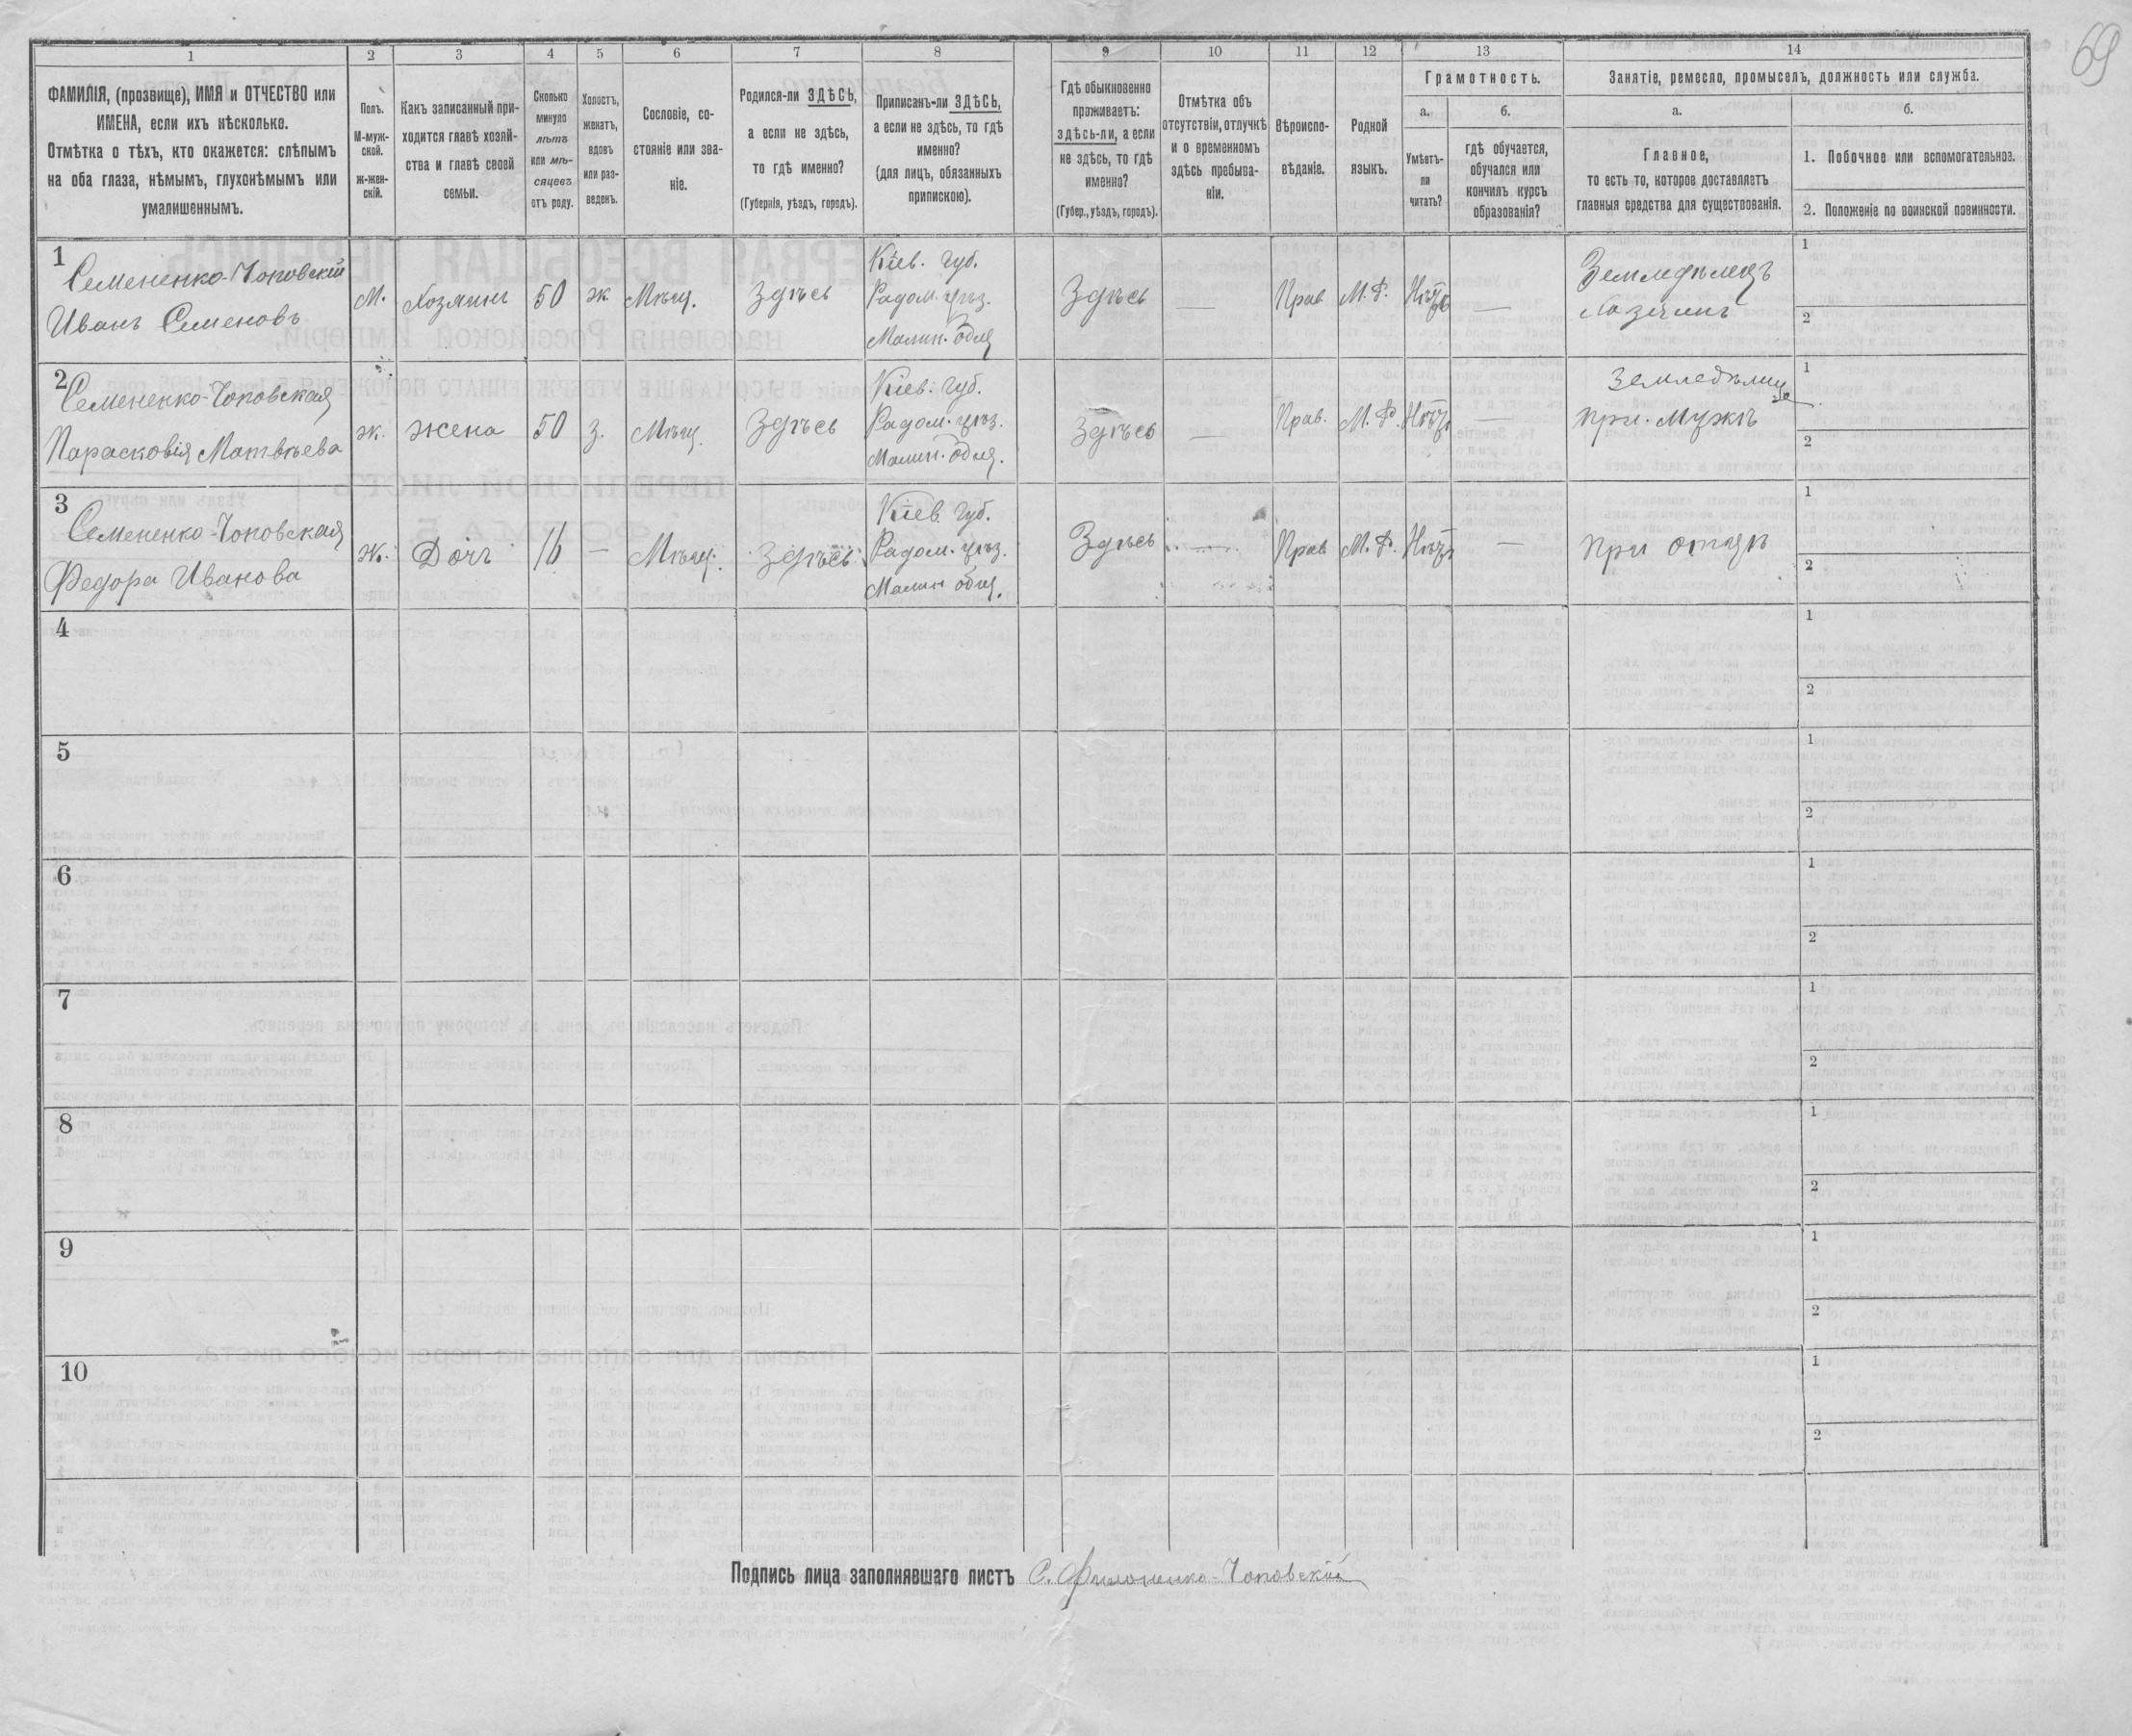 69
1 2 3 4 5 6 7 8 9 10 11 12 13 14
ФАМИЛІЯ, (прозвище), ИМЯ и ОТЧЕСТВО или
ИМЕНА, если ихъ нѣсколько.
Отмѣтка о тѣхъ, кто окажется: слѣпымъ
на оба глаза, нѣмымъ, глухонѣмымъ или
умалишеннымъ.
Полъ.
М-муж-
ской.
ж-жен-
скій.
Какъ записанный при-
ходится главѣ хозяй-
ства и главѣ своей
семьи.
Сколько
минуло
лѣтъ
или мѣ-
сяцевъ
отъ роду.
Холостъ,
женатъ,
вдовъ
или раз-
веденъ.
Сословіе, со-
стояніе или зва-
ніе.
Родился-ли ЗДѢСЬ,
а если не здѣсь,
то гдѣ именно?
(Губернія, уѣздъ, городъ).
Приписанъ-ли ЗДѢСЬ,
а если не здѣсь, то гдѣ
именно?
(для лицъ, обязанныхъ
припискою).
Гдѣ обыкновенно
проживаетъ:
здѣсь-ли, а если
не здѣсь, то гдѣ
именно?
(Губер., уѣздъ, городъ).
Отмѣтка объ
отсутствіи, отлучкѣ
и о временномъ
здѣсь пребыва-
ніи.
Вѣроиспо-
вѣданіе.
Родной
языкъ.
Грамотность.
а.
Умѣетъ-
ли
читать?
б.
гдѣ обучается,
обучался или
кончилъ курсъ
образованія?
Занятіе, ремесло, промыселъ, должность или служба.
а.
Главное,
то есть то, которое доставляетъ
главныя средства для существованія.
б.
1. Побочное или вспомогательное.
2. Положеніе по воинской повинности.
1
Семененко-Чоповскій
Иванъ Семеновъ
М.
Хозяинъ
50
ж
Мѣщ.
Здѣсь
Кіев. губ.
Радом. уѣз.
Малин. общ
Здѣсь
—
Прав
М. Р.
Нѣтъ
—
Земледѣлецъ
хозяинъ
1
2
2
Семененко-Чоповская
Парасковія Матвѣева
ж.
жена
50
з.
Мѣщ.
Здѣсь
Кіев. губ.
Радом. уѣз.
Малин. общ.
Здѣсь
—
Прав.
М. Р.
Нѣтъ
—
при. мужѣ
1
2
3
Семененко-Чоповская
Федора Иванова
ж.
Дочь
16
—
Мѣщ.
Здѣсь
Кіев. губ.
Радом. уѣз.
Малин общ.
Здѣсь
—
Прав
М. Р.
Нѣтъ
—
при отцѣ
1
2
4
1
2
5
1
2
6
1
2
7
1
2
8
1
2
9
1
2
10
1
2
Подпись лица заполнявшаго листъ С. Филоненко-Чоповскій